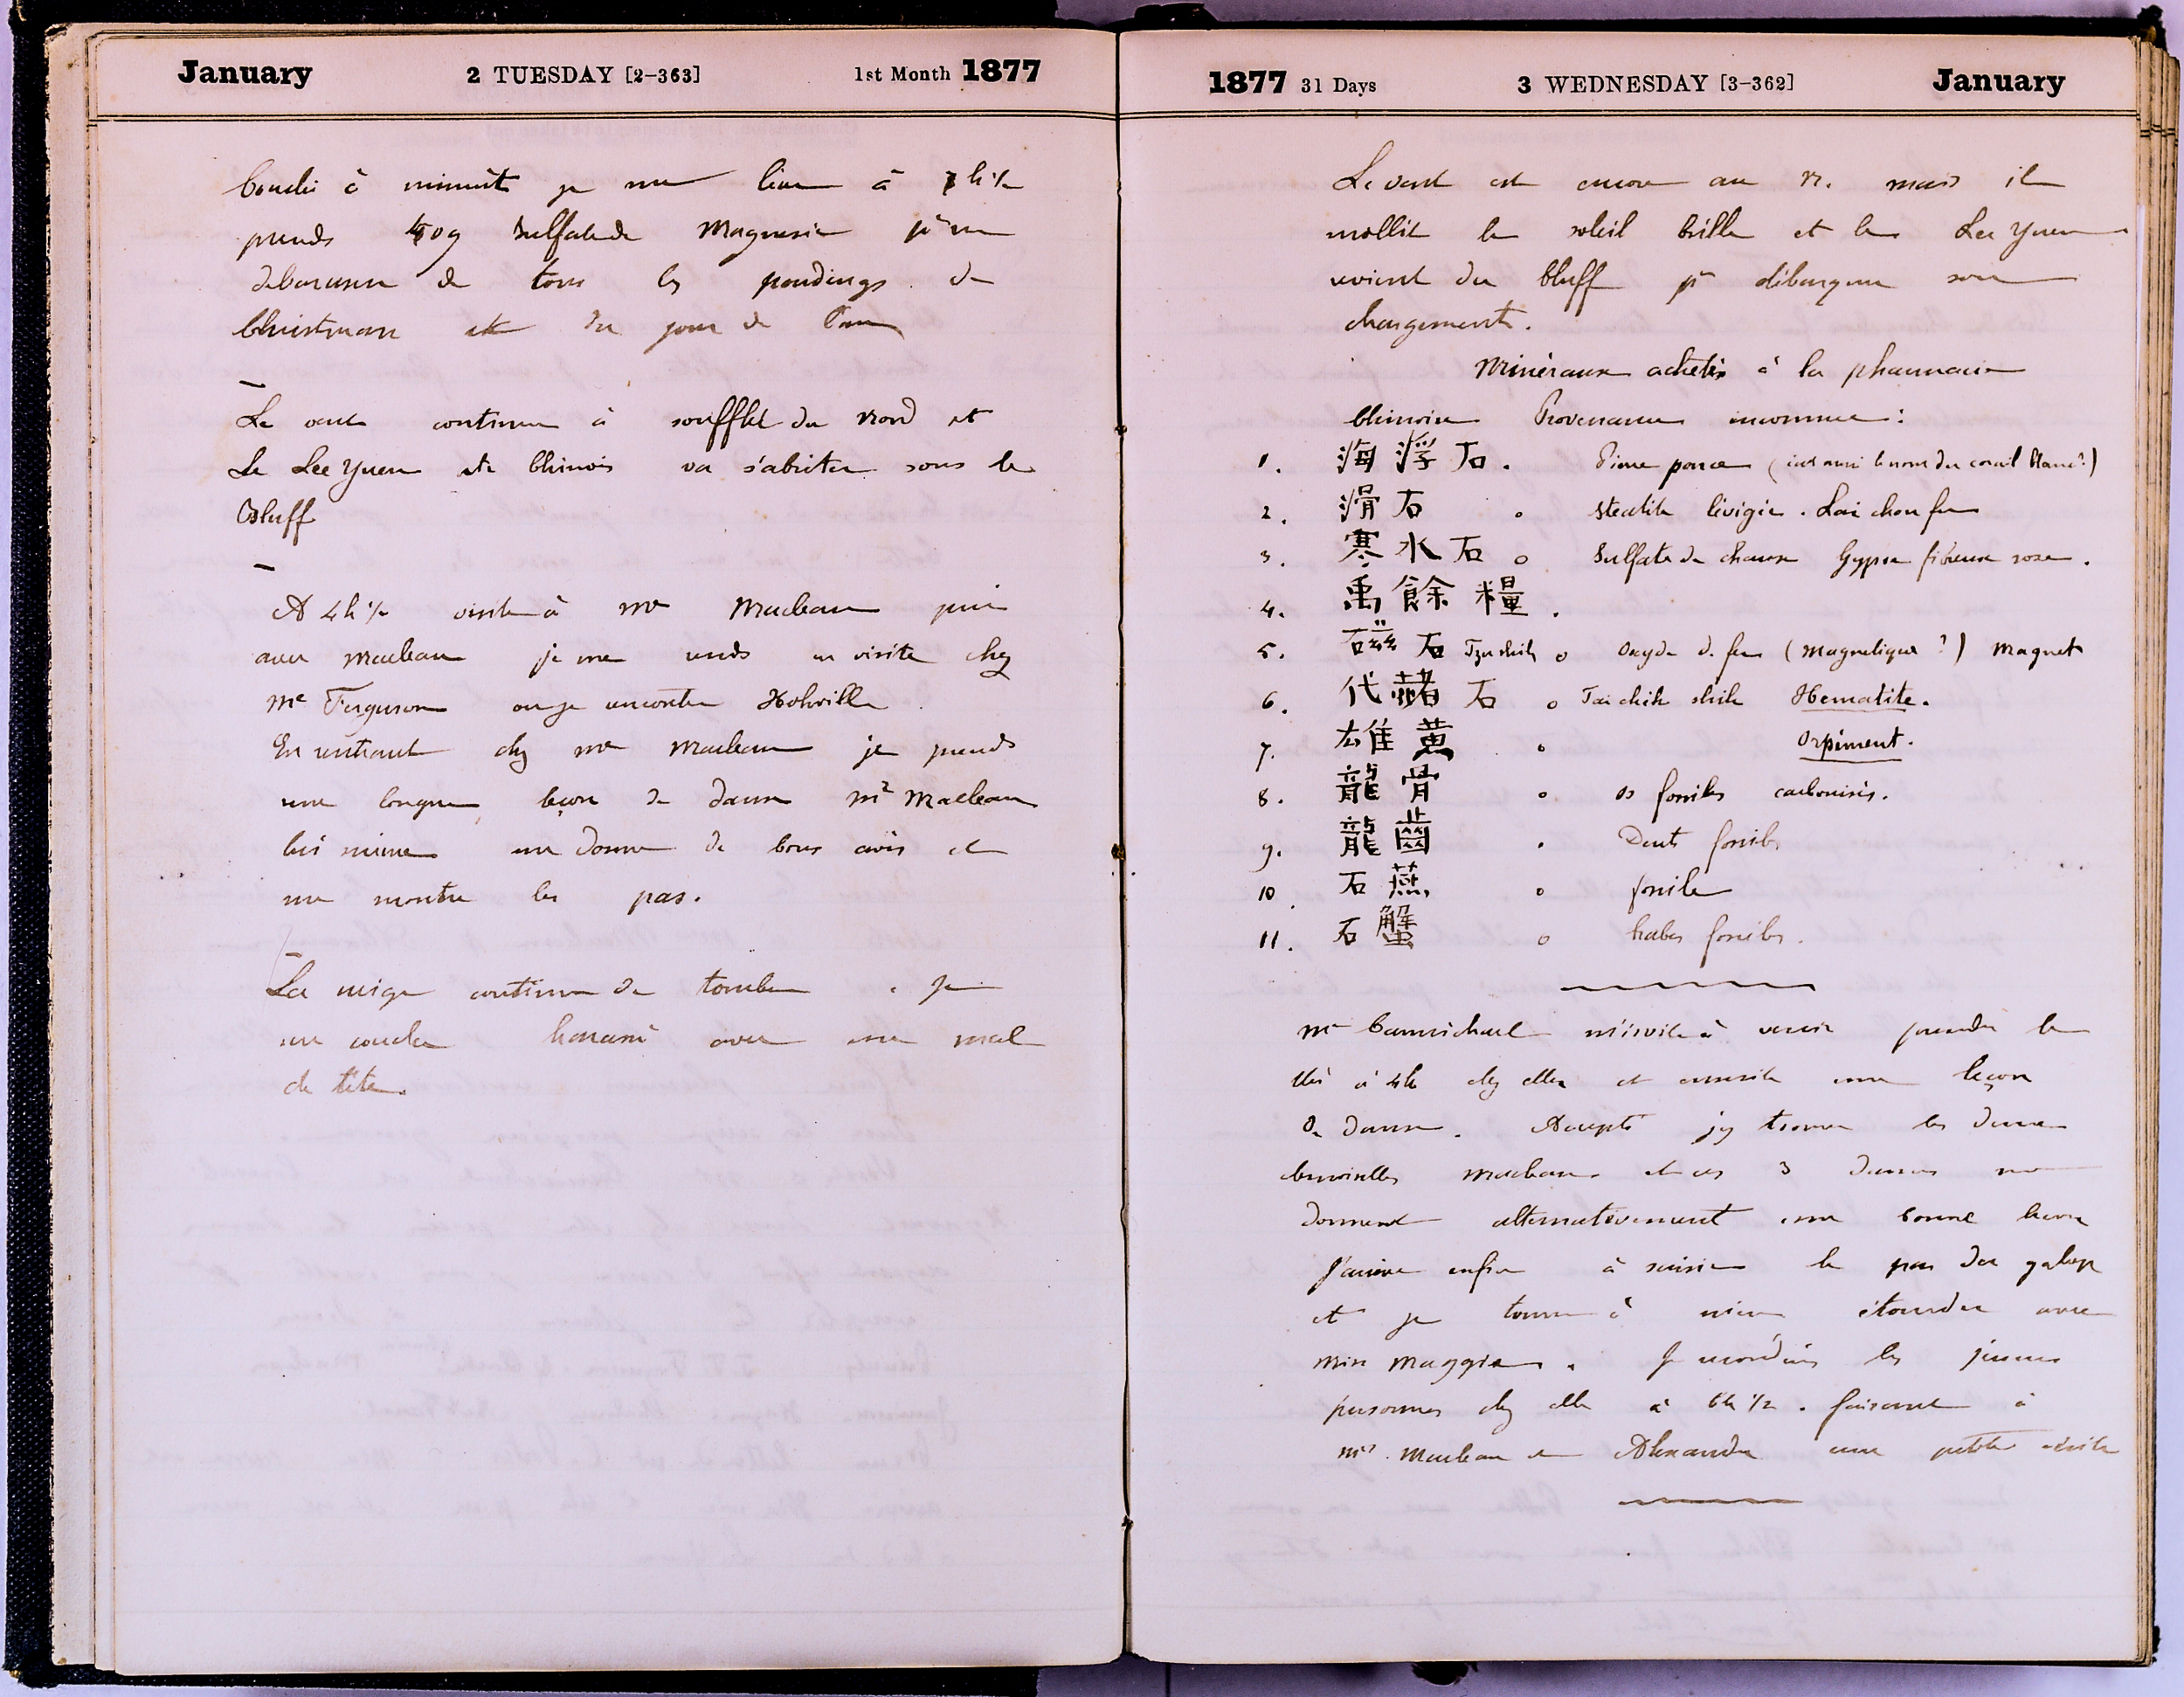 January 2 TUESDAY [2-363] 1st Month 1877
Couché à minuit je me lève à 7h½
prends 40g Sulfate de Magnésie je me
débarrasse de tous les poudings de
Christmas et du jour de l'an
Le vent continue à souffler du Nord et
Le Lee Yuen etc Chinois va s'abriter sous le
Bluff
A 4h½ visite à Me Maclean puis
avec Maclean je me rends en visite chez
Me Ferguson ou je rencontre
En rentrant chez Me Maclean je prends
une longue leçon de danse Mr Maclean
lui même me donne de bons avis et
me montre les pas.
La neige continue de tomber. Je
me couche harassé avec un mal
de tête.
1877 31 Days 3 WEDNESDAY [3-362] January
Le vent est encore au N. mais il
mollit le soleil brille et le Lee Yuen
revient du bluff je débarque son
chargement.
Minéraux achetés à la pharmacie
Chinoise Provenance inconnue:
1. 海浮石. Pierre ponce (c'est aussi le nom du corail blanc?)
2. 滑石 o steatite lévigée. Lai chou fu
3. 寒水石 o Sulfate de chaux Gypse fibreux rose.
4. 禹餘糧.
5. 磁石 Tzu shih o Oxyde de fer (Magnetique?) Magnet
6. 代赭石 o Tai chih shih Hematite.
7. 雄黄 o Orpiment.
8. 龍骨 o Os fossiles carbonisés.
9. 龍齒 . Dents fossiles
10. 石燕 o fossile
11. 石蟹 o Crabes fossiles.
Me Carmichael m'invite à venir prendre le
thé à 4h chez elle et ensuite une leçon
de danse. Accepté j'y trouve les deux
demoiselles Maclean et ces 3 dames me
donnent alternativement une bonne leçon
J'arrive enfin à saisir le pas du galop
et je tourne à m'en étourdir avec
Miss Maggie. Je reconduis les jeunes
personnes chez elle à 6h½. faisant à
Mrs. Maclean et Alexandre une petite visite